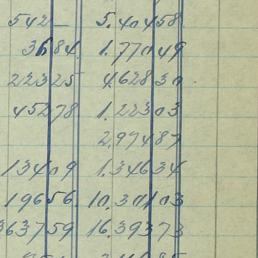 542— 5.40458
3684 1.77049
22325 4.62830
45278 1.22303
2.97487
13409 1.34634
19656 10.30103
363759 16.39373